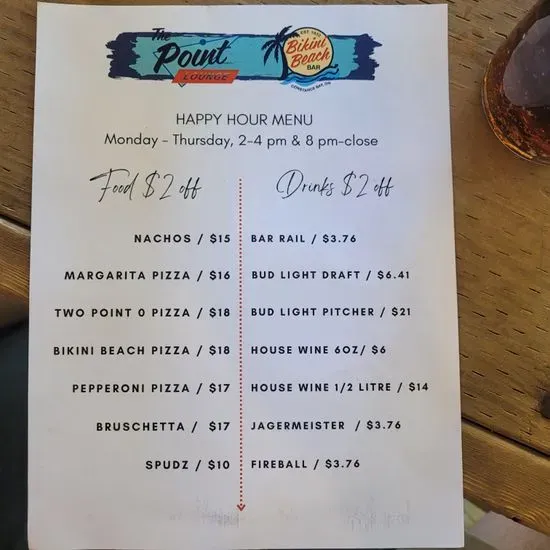 The
Point
LOUNGE
Bikini
Beach
BAR
CONSTANCE BAY, ON
HAPPY HOUR MENU
Monday - Thursday, 2-4 pm & 8 pm-close
Food $2 off
NACHOS / $15
MARGARITA PIZZA / $16
TWO POINT 0 PIZZA / $18
BIKINI BEACH PIZZA / $18
PEPPERONI PIZZA / $17
BRUSCHETTA / $17
SPUDZ / $10
Drinks $2 off
BAR RAIL / $3.76
BUD LIGHT DRAFT / $6.41
BUD LIGHT PITCHER / $21
HOUSE WINE 6OZ/ $6
HOUSE WINE 1/2 LITRE / $14
JAGERMEISTER / $3.76
FIREBALL / $3.76